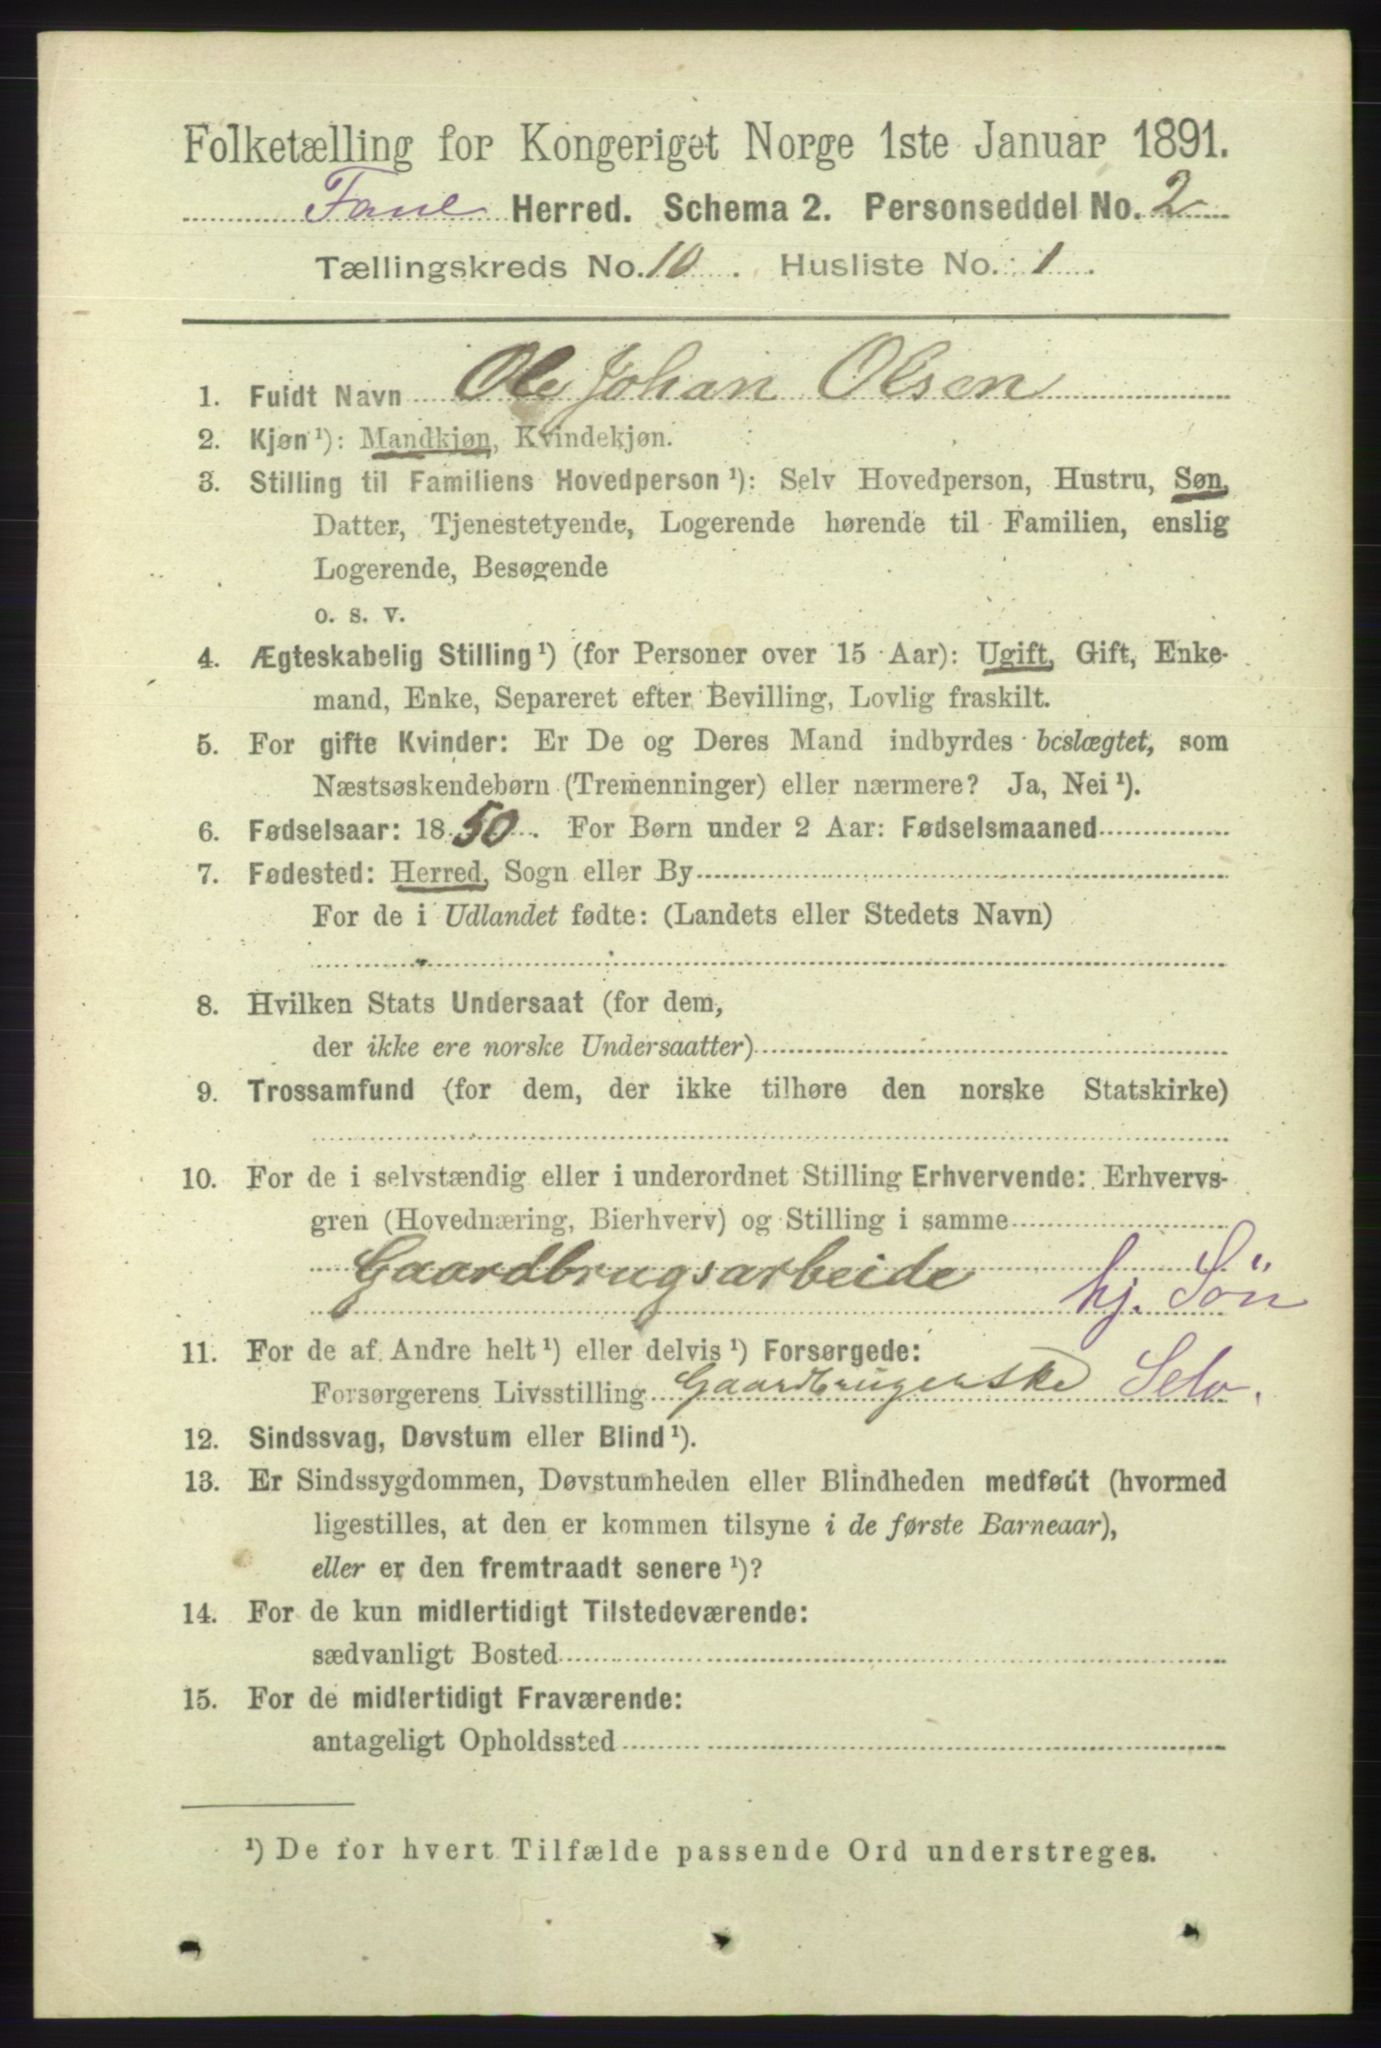 Folketælling for Kongeriget Norge 1ste Januar 1891.
Fane Herred. Schema 2. Personseddel No. 2
Tællingskreds No. 10. Husliste No. 1.
1. Fuldt Navn Ole Johan Olsen
2. Kjøn¹): Mandkjøn, Kvindekjøn.
3. Stilling til Familiens Hovedperson¹): Selv Hovedperson, Hustru, Søn,
Datter, Tjenestetyende, Logerende hørende til Familien, enslig
Logerende, Besøgende
o. s. v.
4. Ægteskabelig Stilling¹) (for Personer over 15 Aar): Ugift, Gift, Enke-
mand, Enke, Separeret efter Bevilling, Lovlig fraskilt.
5. For gifte Kvinder: Er De og Deres Mand indbyrdes beslægtet, som
Næstsøskendebørn (Tremenninger) eller nærmere? Ja, Nei¹).
6. Fødselsaar: 1850. For Børn under 2 Aar: Fødselsmaaned
7. Fødested: Herred, Sogn eller By
For de i Udlandet fødte: (Landets eller Stedets Navn)
8. Hvilken Stats Undersaat (for dem,
der ikke ere norske Undersaatter)
9. Trossamfund (for dem, der ikke tilhøre den norske Statskirke)
10. For de i selvstændig eller i underordnet Stilling Erhvervende: Erhvervs-
gren (Hovednæring, Bierhverv) og Stilling i samme
Gaardbrugsarbeide hj. Sön
11. For de af Andre helt¹) eller delvis¹) Forsørgede:
Forsørgerens Livsstilling Gaardbrugerske Selv.
12. Sindssvag, Døvstum eller Blind¹).
13. Er Sindssygdommen, Døvstumheden eller Blindheden medfødt (hvormed
ligestilles, at den er kommen tilsyne i de første Barneaar),
eller er den fremtraadt senere¹)?
14. For de kun midlertidigt Tilstedeværende:
sædvanligt Bosted
15. For de midlertidigt Fraværende:
antageligt Opholdssted
¹) De for hvert Tilfælde passende Ord understreges.